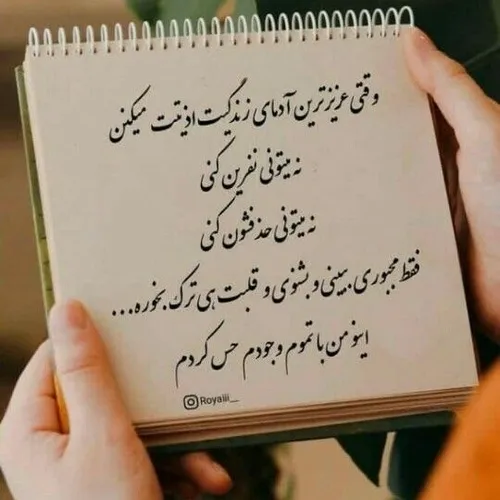 وقتی عزیزترین آدمای زندگیت اذیتت میکنن
نه میتونی نفرین کنی
نه میتونی حذفشون کنی
فقط مجبوری ببینی و بشنوی و قلبت هی ترک بخوره...
اینو من با تموم وجودم حس کردم
Royalii__